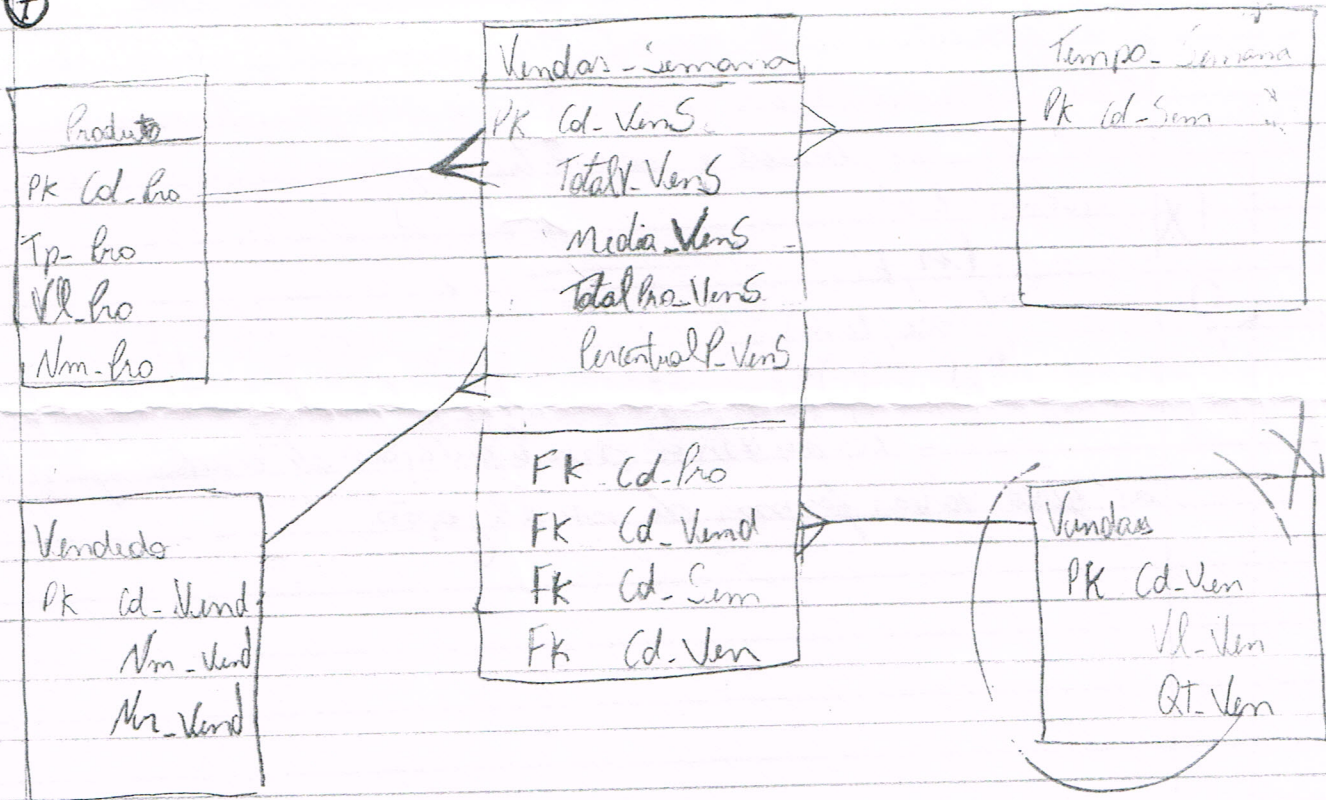 Produto
PK Cd_Pro
Tp_Pro
Vl_Pro
Nm_Pro
Vendas_Semana
PK Cd_VenS
TotalV_VenS
Media_VenS
TotalPro_VenS
PercentualP_VenS
FK Cd_Pro
FK Cd_Vend
FK Cd_Sem
FK Cd_Ven
Tempo_Semana
PK Cd_Sem
Vendedo
PK Cd_Vend
Nm_Vend
Nr_Vend
Vendas
PK Cd_Ven
Vl_Ven
QT_Ven